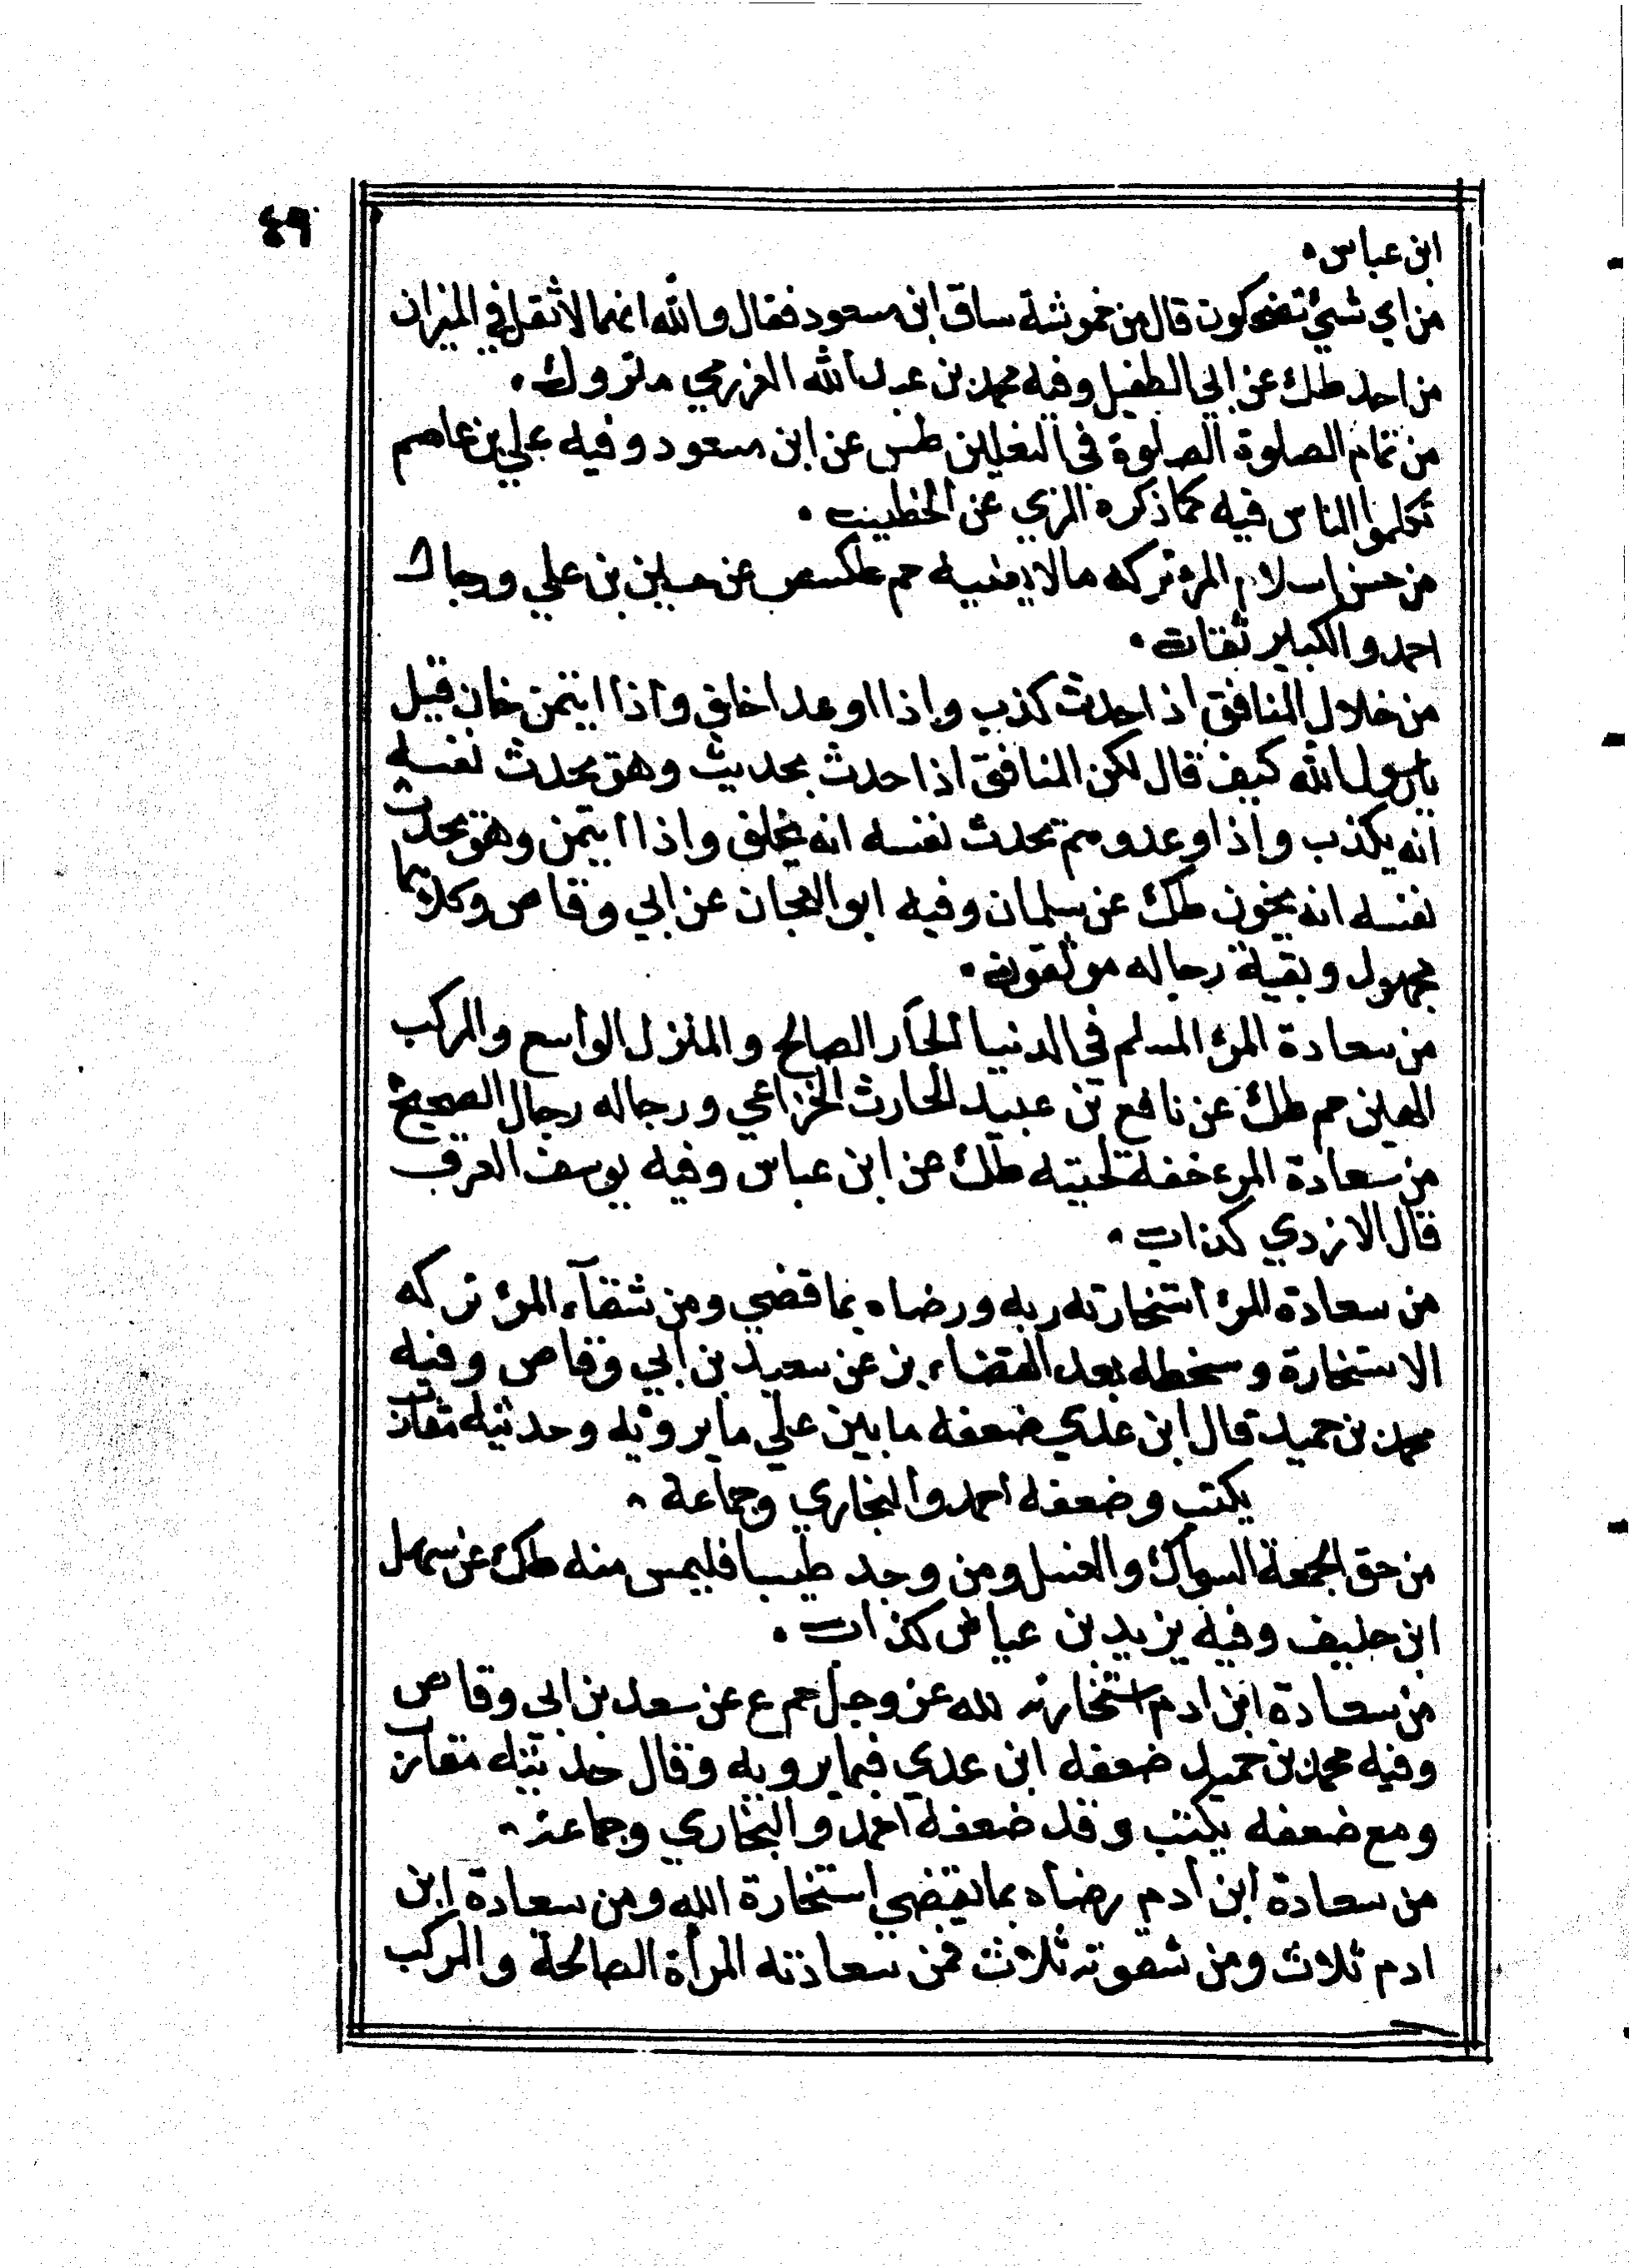 ٤٩
ابن عباس .
من اي شئ تضحكون قال من خموشة ساق ابن مسعود فقال والله انهما لاثقل في الميزان
من احد طك عن ابي الطفيل وفيه محمد بن عبد الله العزرمي متروك .
من تمام الصلوة الصلوة في النعلين طس عن ابن مسعود وفيه علي بن عاصم
تكلموا الناس فيه كما ذكره المزي عن الخطيب .
من حسن اسلام المرء تركه مالا يعنيه حم طكسص عن حسين بن علي ورجال
احمد والكبير ثقات .
من خلال المنافق اذا حدث كذب واذا اوعد اخلف واذا ايتمن خان قيل
يا رسول الله كيف قال لكن المنافق اذا حدث بحديث وهو يحدث نفسه
انه يكذب واذا وعد وهو يحدث نفسه انه يخلف واذا ايتمن وهو يحدث
نفسه انه يخون طك عن سلمان وفيه ابو النعمان عن ابي وقاص وكلاهما
مجهول وبقية رجاله موثقون .
من سعادة المرئ المسلم في الدنيا الجار الصالح والمنزل الواسع والمركب
الهين حم طك عن نافع بن عبيد الحارث الخزاعي ورجاله رجال الصحيح
من سعادة المرء خفة لحيته طك عن ابن عباس وفيه يوسف الغرق
قال الازدي كذاب .
من سعادة المرئ استخارته ربه ورضاه بما قضي ومن شقآء المرئ تركه
الاستخارة وسخطه بعد القضاء بز عن سعيد بن ابي وقاص وفيه
محمد بن حميد قال ابن عدي ضعفه ما بين علي ما يرويه وحديثه مقارب
يكتب وضعفه احمد والبخاري وجماعة .
من حق الجمعة السواك والغسل ومن وجد طيبا فليمس منه طك عن سهل
ابن حنيف وفيه يزيد بن عياض كذاب .
من سعادة ابن ادم استخارته لله عز وجل حم ع عن سعد بن ابي وقاص
وفيه محمد بن حميد ضعفه ابن عدي فيما يرويه وقال حديثه مقارب
ومع ضعفه يكتب وقد ضعفه احمد والبخاري وجماعة .
من سعادة ابن ادم رضاه بما يقضي استخارة الله ومن سعادة ابن
ادم ثلاث ومن شقوته ثلاث فمن سعادته المرأة الصالحة والمركب